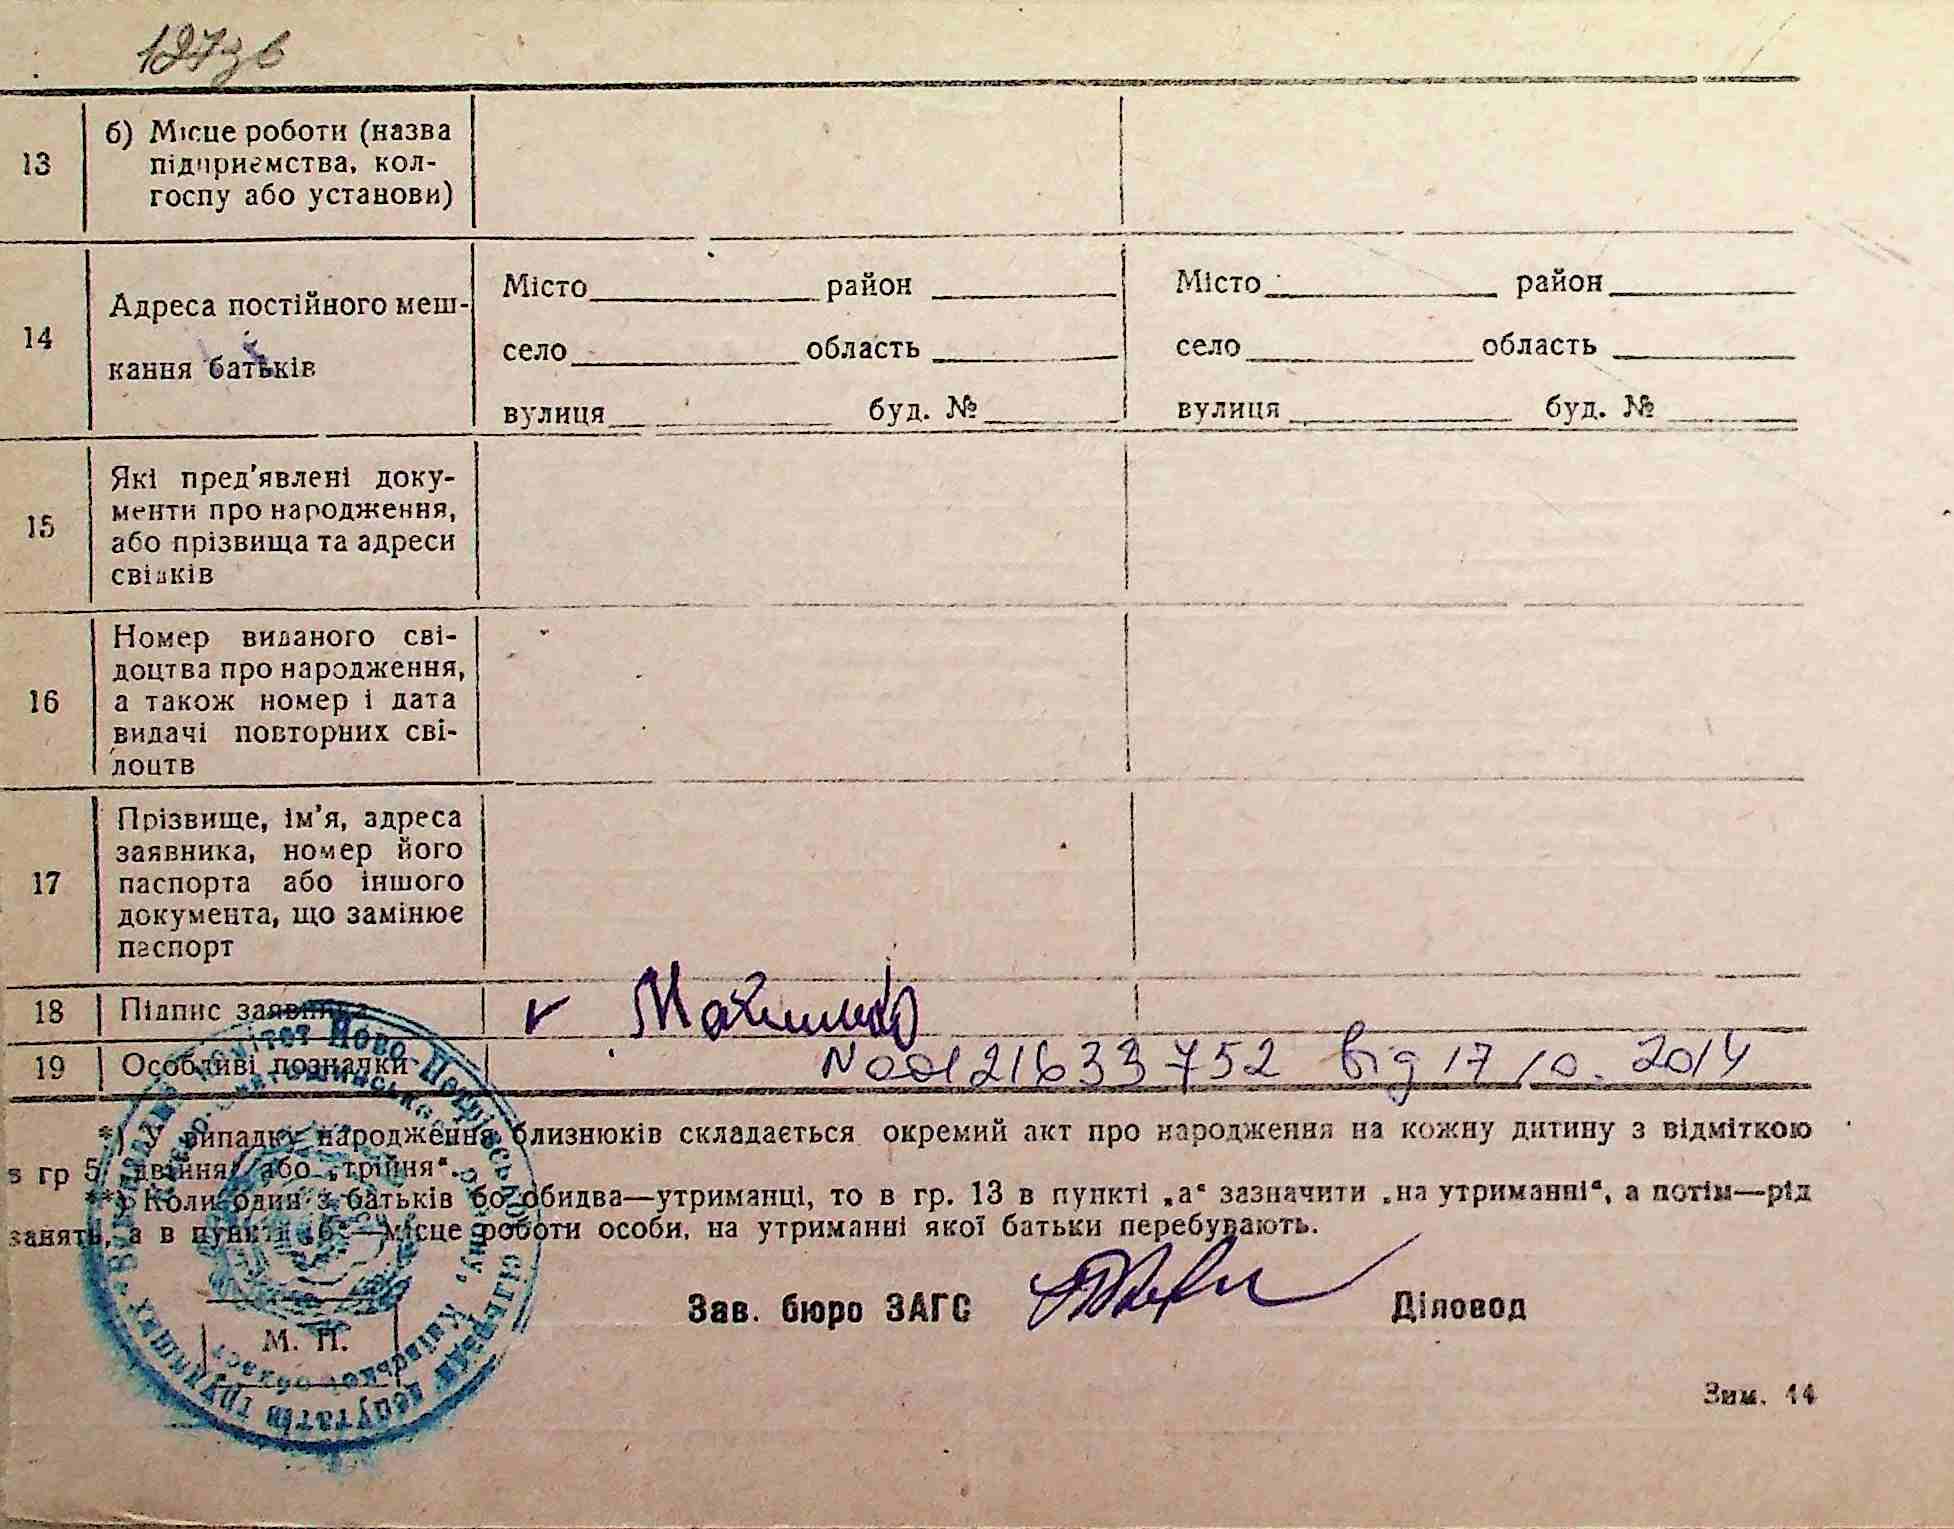 127зв
13
б) Місце роботи (назва
підприємства, кол-
госпу або установи)
14
Адреса постійного меш-
кання батьків
Місто район
село область
вулиця буд. №
Місто район
село область
вулиця буд. №
15
Які пред'явлені доку-
менти про народження,
або прізвища та адреси
свідків
16
Номер виданого сві-
доцтва про народження,
а також номер і дата
видачі повторних сві-
доцтв
17
Прізвище, ім'я, адреса
заявника, номер його
паспорта або іншого
документа, що замінює
паспорт
18 Підпис заявника
19 Особливі позначки
N00121633752 від 17/10.2014
*) У випадку народження близнюків складається окремий акт про народження на кожну дитину з відміткою
в гр 5 „двійня“ або „трійня“.
**) Коли один з батьків бо обидва—утриманці, то в гр. 13 в пункті „а“ зазначити „на утриманні“, а потім—рід
занять, а в пункті „б“—місце роботи особи, на утриманні якої батьки перебувають.
Зав. бюро ЗАГС Діловод
М. П.
Виконавчий комітет Ново-Петрівської сільради депутатів трудящих
Києво-Святошинського району, Київської області
Зим. 14